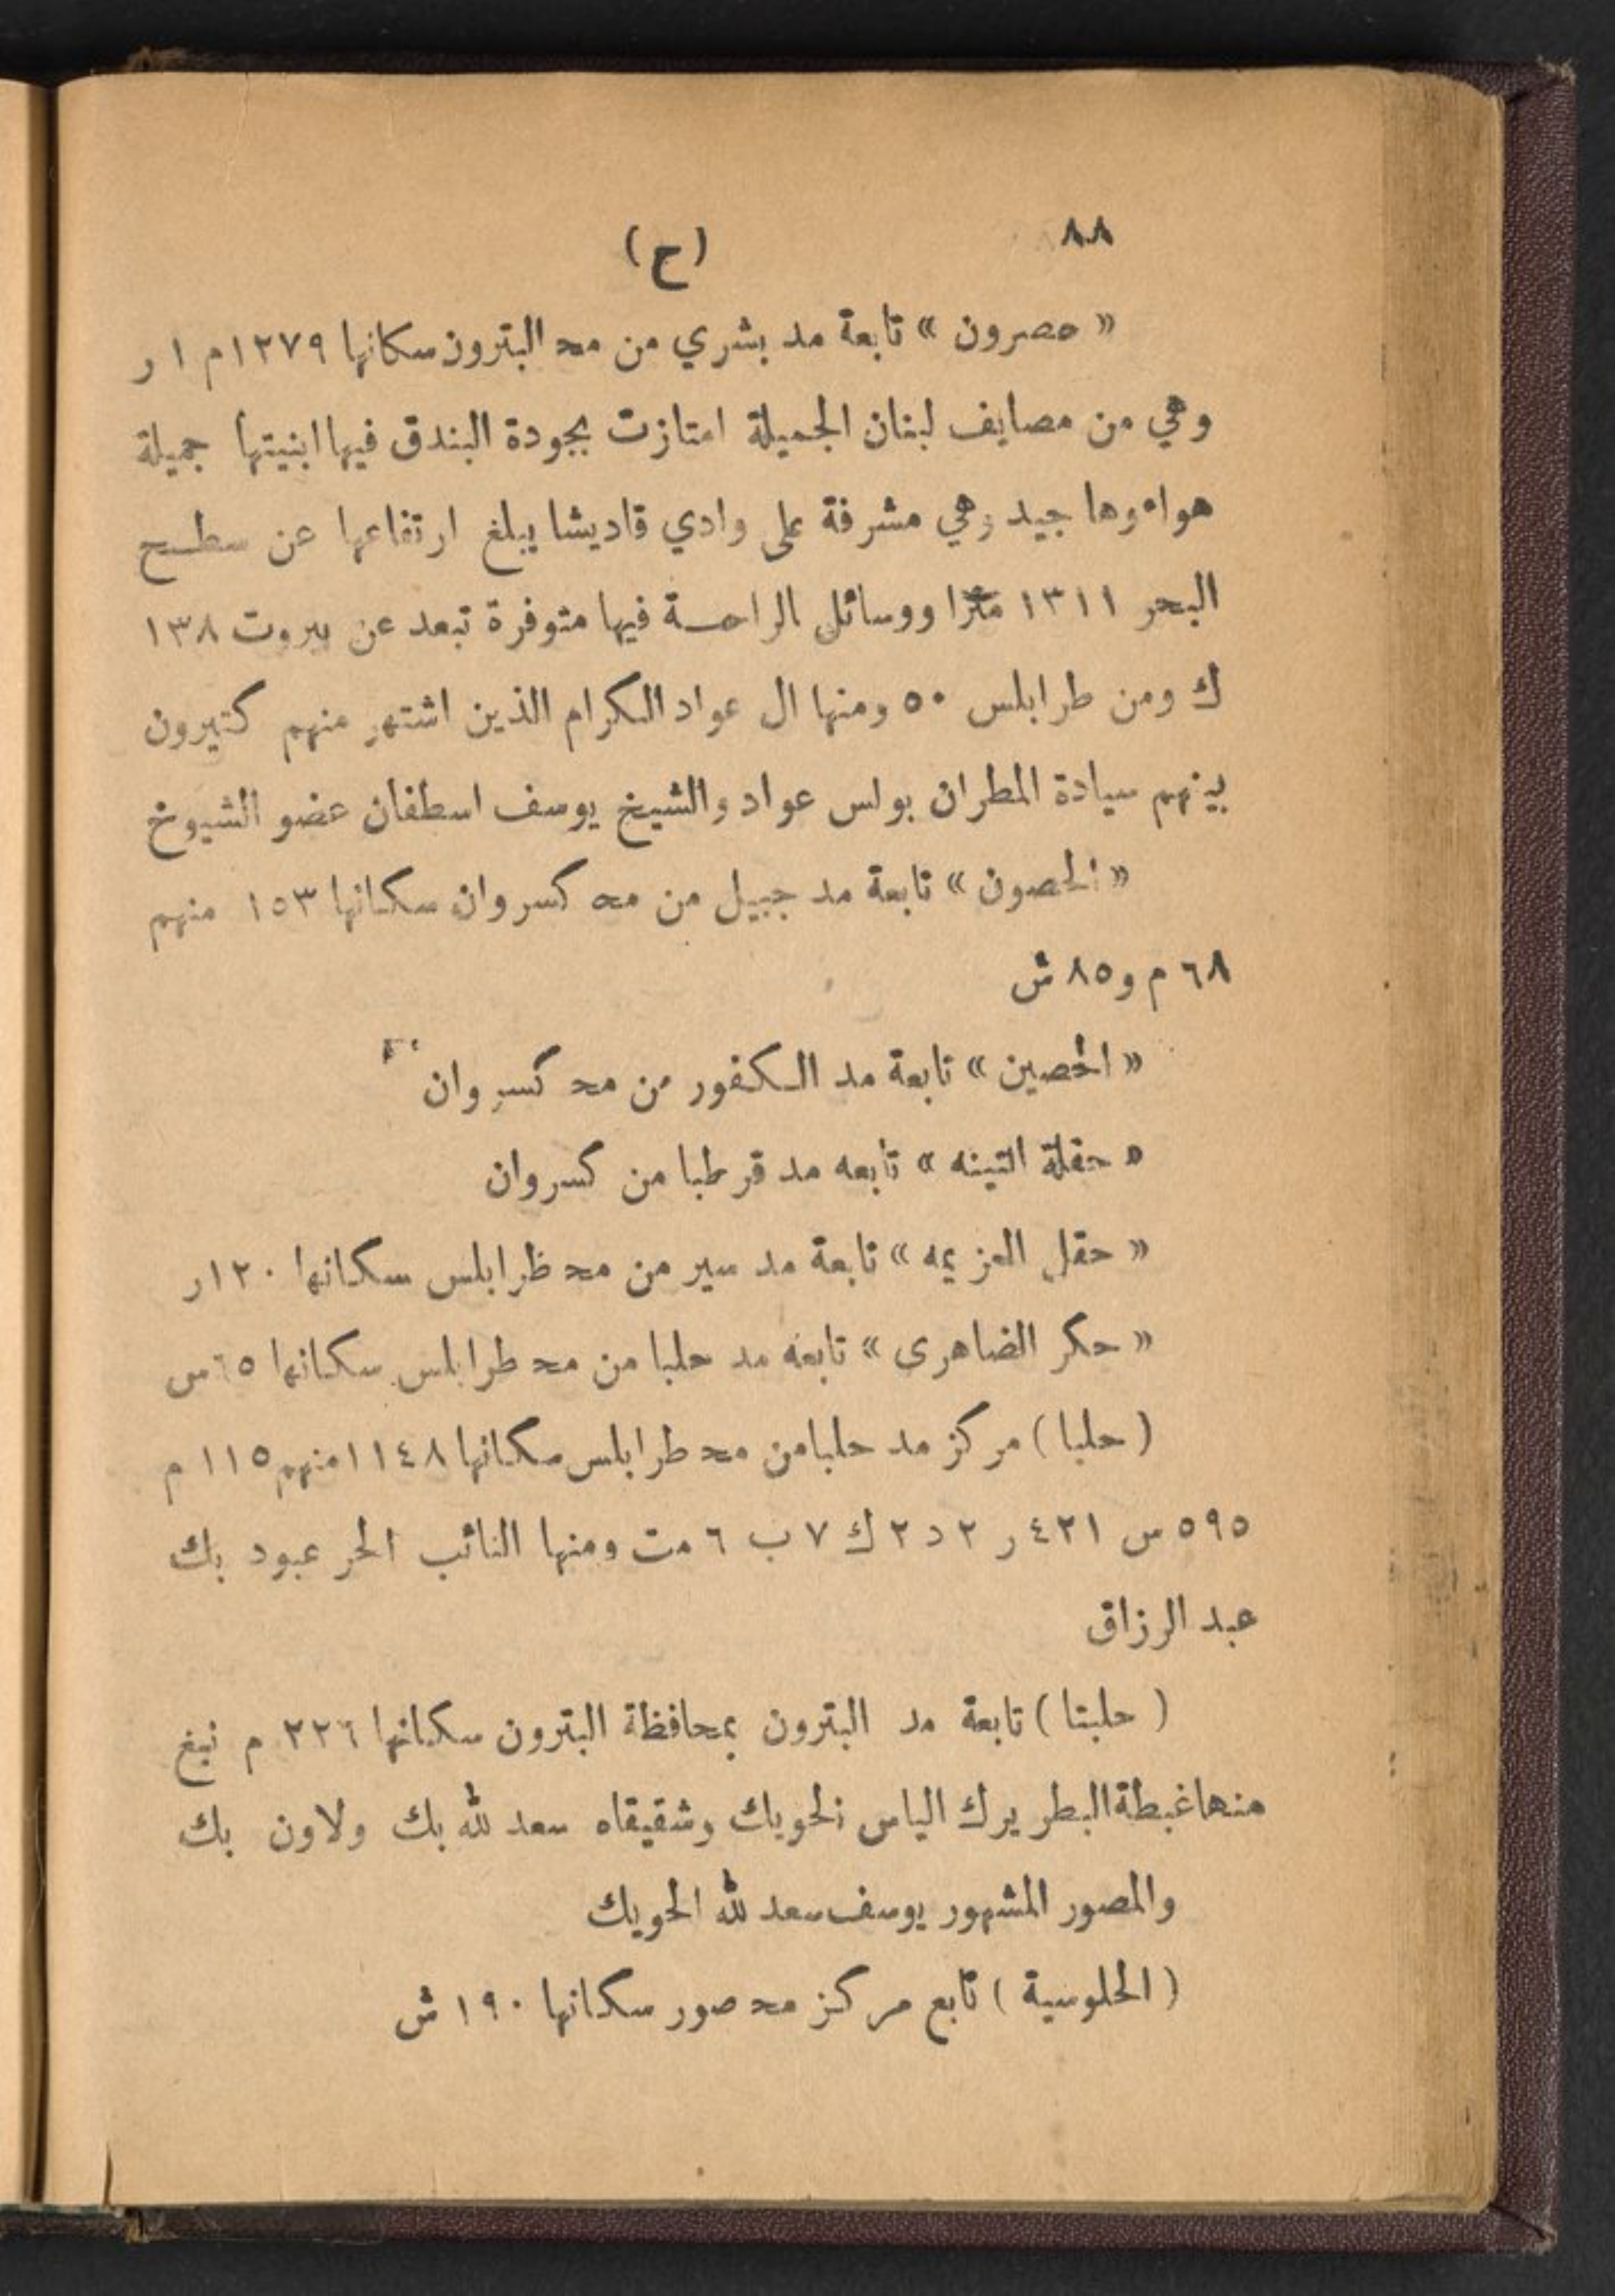 ٨٨
(ح)
« حصرون » تابعة مد بشري من مح البترون سكانها ١٢٧٩م ١ ر
وهي من مصايف لبنان الجميلة امتازت بجودة البندق فيها ابنيتها جميلة
هواءوها جيد وهي مشرفة على وادي قاديشا يبلغ ارتفاعها عن سطح
البحر ١٣١١ مترًا ووسائل الراحة فيها متوفرة تبعد عن بيروت ١٣٨
ك ومن طرابلس ٥٠ ومنها ال عواد الكرام الذين اشتهر منهم كثيرون
بينهم سيادة المطران بولس عواد والشيخ يوسف اسطفان عضو الشيوخ
« الحصون » تابعة مد جبيل من مح كسروان سكانها ١٥٣ منهم
٦٨ م و٨٥ ش
« الحصين » تابعة مد الكفور من مح كسروان
« حقلة التينه » تابعه مد قرطبا من كسروان
« حقل العزيمه » تابعة مد سير من مح ظرابلس سكانها ١٢٠ر
« حكر الضاهرى » تابعه مد حلبا من مح طرابلس سكانها ٦٥س
( حلبا ) مركز مد حلبا من مح طرابلس سكانها ١١٤٨ منهم ١١٥ م
٥٩٥ س ٤٢١ ر ٢ د ٢ ك ٧ ب ٦ مت ومنها النائب الحر عبود بك
عبد الرزاق
( حلبتا ) تابعة مد البترون بمحافظة البترون سكانها ٢٢٦ م نبغ
منها غبطة البطريرك الياس الحويك وشقيقاه سعدلله بك ولاون بك
والمصور المشهور يوسف سعدلله الحويك
( الحلوسية ) تابع مركز مح صور سكانها ١٩٠ ش